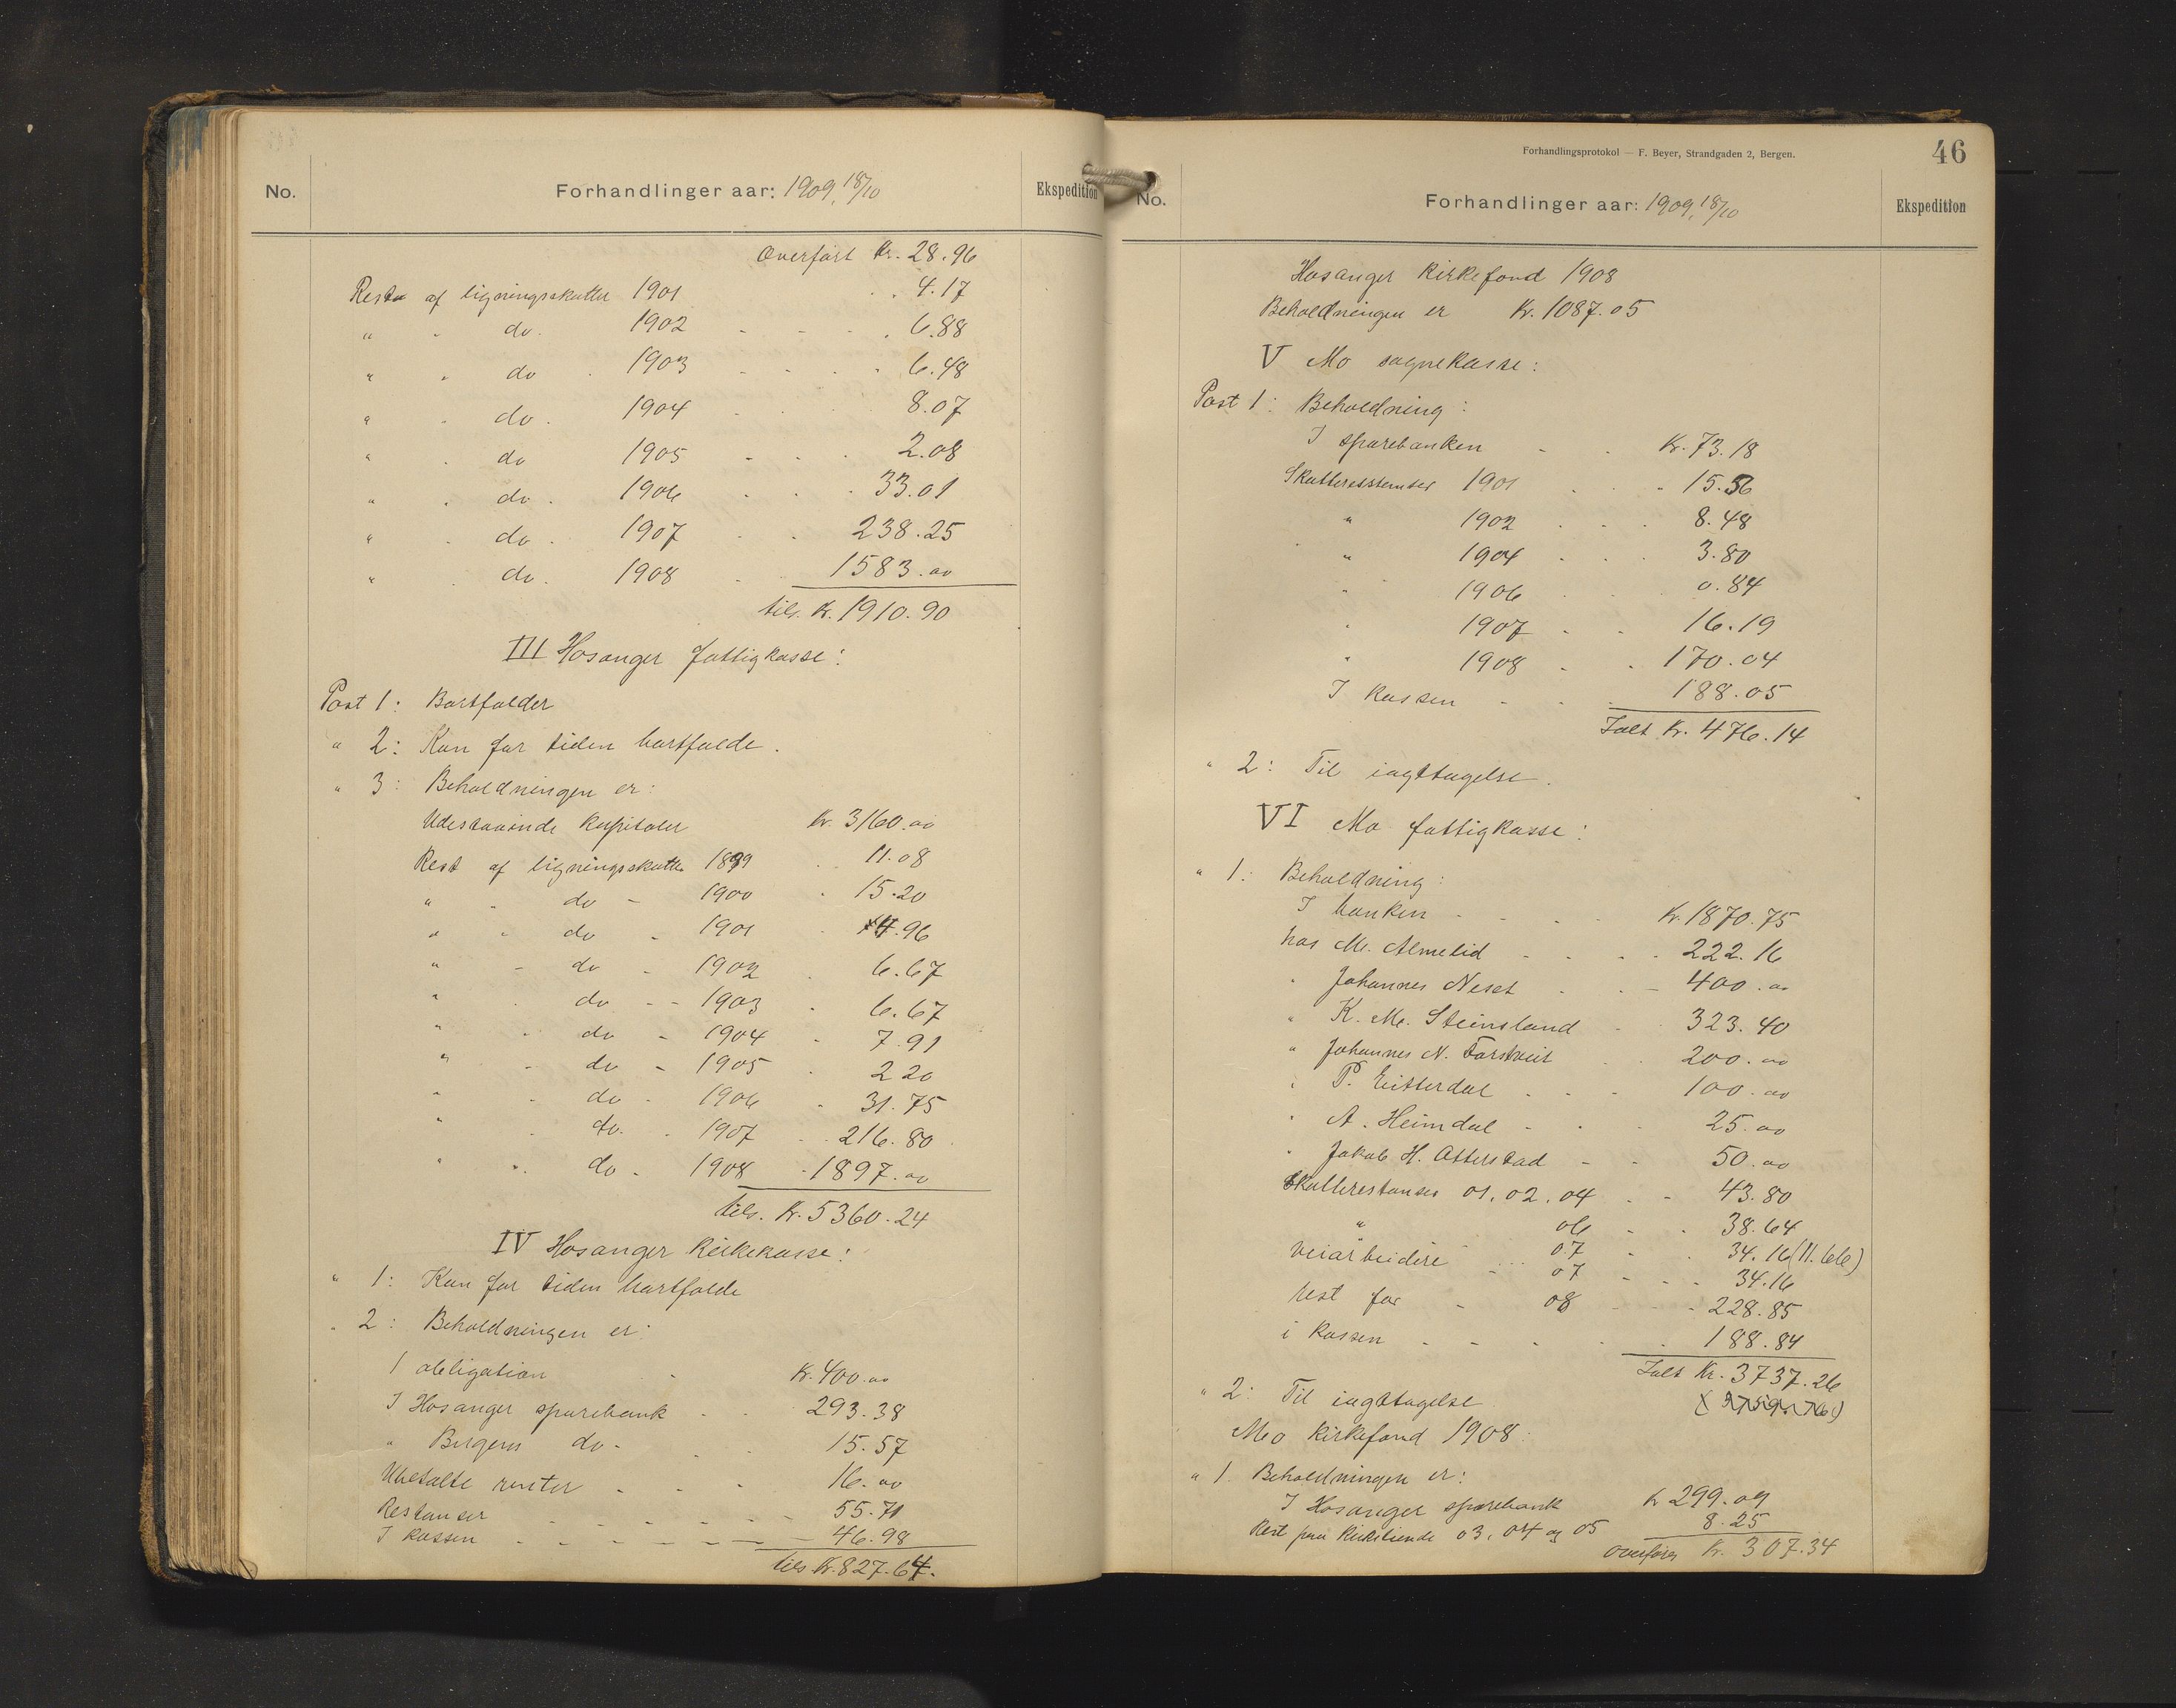 No. Forhandlinger aar: 1909, 18/10 Ekspedition
Overført Kr. 28.96
Rest af ligningsskatter 1901 4.17
" " do. 1902 6.88
" " do 1903 6.48
" " do. 1904 8.07
" " do 1905 2.08
" " do. 1906 33.01
" " do. 1907 238.25
" " do. 1908 1583.00
tils. Kr. 1910.90
III Hosanger fattigkasse:
Post 1: Bortfalder
" 2: Kan for tiden bortfalde.
" 3: Beholdningen er:
Udestaaende kapitaler Kr. 3160.00
Rest af ligningsskatter 1899 11.08
" " do - 1900 15.20
" " do - 1901 4.96
" - do - 1902 6.67
" " do - 1903 6.67
" " do - 1904 7.91
" - do - 1905 2 20
" " do - 1906 31.75
" " do. 1907 216.80
" " do. 1908 1897.00
tils. Kr. 5360.24
IV Hosanger kirkekasse:
" 1: Kan for tiden bortfalde
" 2: Beholdningen er:
1 obligation Kr. 400.00
I Hosanger sparebank 293.38
" Bergens do. 15.57
Ubetalte renter 16.00
Restanser 55.71
I kassen 46.98
tils Kr. 827.64.
Forhandlingsprotokol — F. Beyer, Strandgaden 2, Bergen. 46
No. Forhandlinger aar: 1909, 18/10 Ekspedition
Hosanger kirkefond 1908
Beholdningen er Kr. 1087.05
V Mo sognekasse:
Post 1: Beholdning:
I sparebanken Kr. 73.18
Skatterestanser 1901 15.56
" 1902 8.48
" 1904 3.80
" 1906 0.84
" 1907 16.19
" 1908 170.04
I kassen 188.05
Ialt Kr. 476.14
" 2: Til iagttagelse.
VI Mo fattigkasse:
" 1: Beholdning:
I banken Kr. 1870.75
hos M. Almelid 222.16
" Johannes Neset 400.00
" K. M. Steinsland 323.40
" Johannes N. Forstveit 200.00
" P. Eitterdal 100.00
" A. Heimdal 25.00
" Jakob H. Otterstad 50.00
Skatterestanser 01, 02, 04 43.80
" 06 38.64
veiarbeidere 07 34.16 (11.66)
07 34.16
rest for 08 228.85
i kassen 188.84
Ialt Kr. 3737.26
(3759.76)
" 2: Til iagttagelse
Mo kirkefond 1908:
" 1. Beholdningen er:
I Hosanger sparebank Kr 299.09
Rest paa kirketiende 03, 04 og 05 8.25
overføres Kr. 307.34